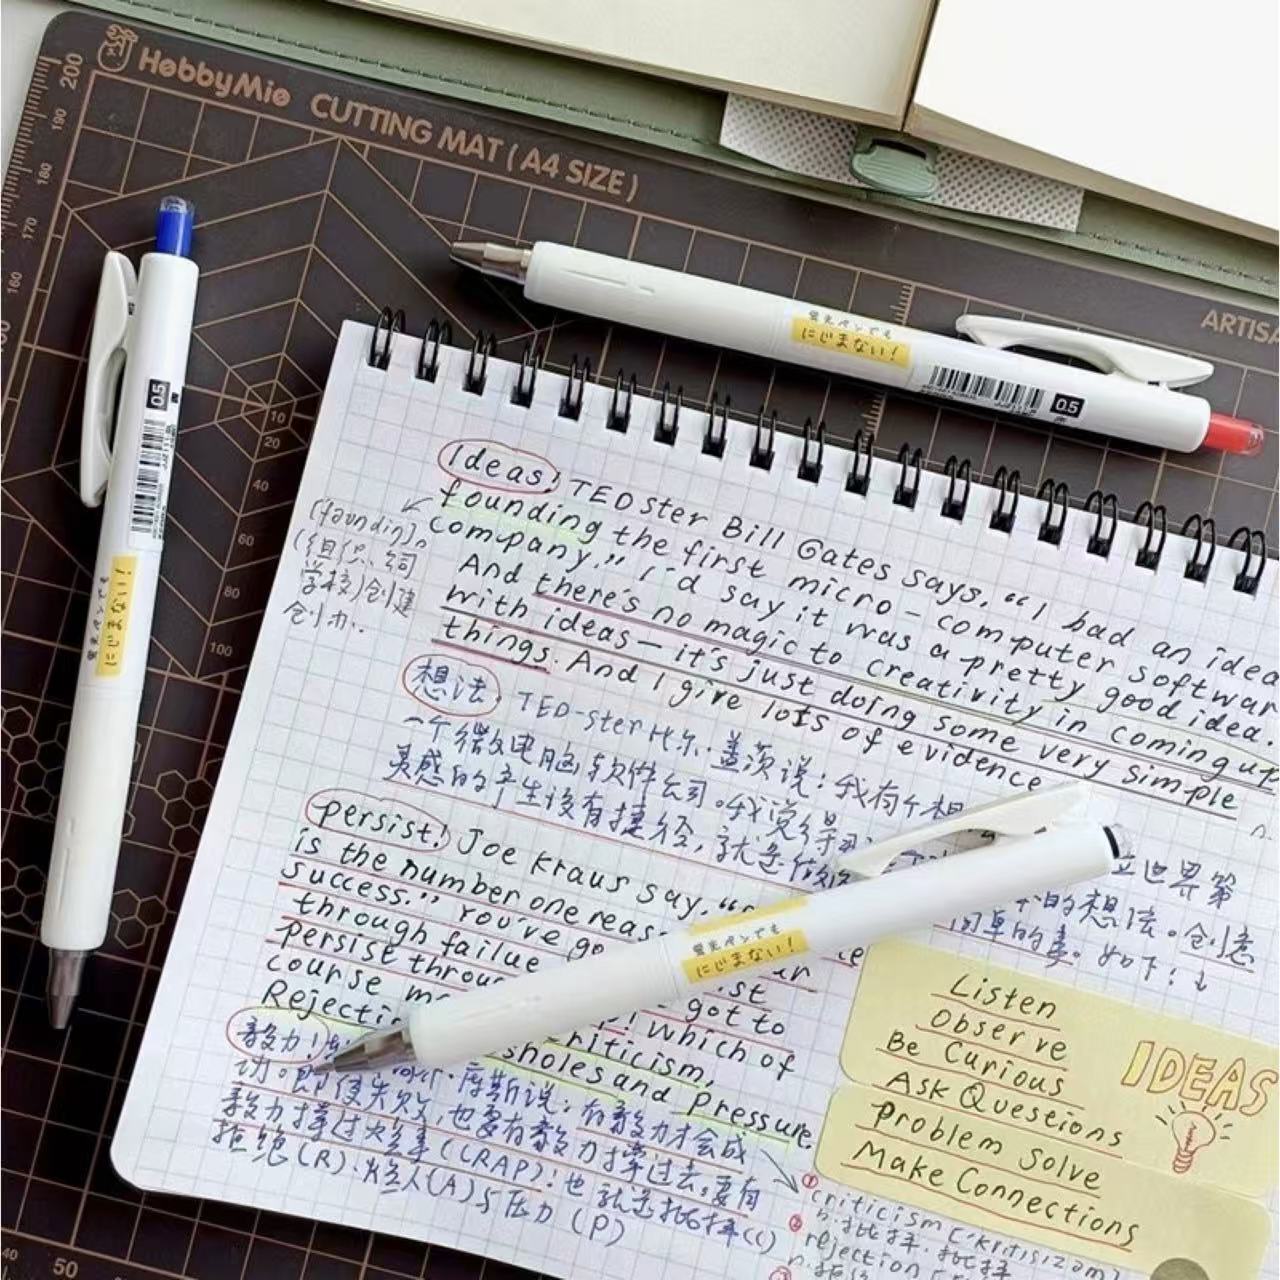 HobbyMio CUTTING MAT (A4 SIZE)
200
190
180
170
160
ARTISA
10
20
40
60
80
100
40
50
蛍光ペンでも
にじまない!
0.5
赤
蛍光ペンでも
にじまない!
0.5
青
蛍光ペンでも
にじまない!
Ideas! TEDster Bill Gates says, "I had an idea
founding the first micro-computer softwar
company." I'd say it was a pretty good idea.
And there's no magic to creativity in coming up
with ideas—it's just doing some very simple
things. And I give lots of evidence
(founding)n
(组织、
学校)创建
创办.
想法, TED-ster 比尔·盖茨说:我有个想
立世界第
一个微电脑软件公司。我说得
的想法。创意
灵感的产生没有捷径,就是做
简单的事。如下:↓
persist! Joe Kraus say,
is the number one reas
success." You've go
through failue
persist throu
ist
got to
course
which of
Rejecti
riticism,
sholes and Pressure.
毅力!
功。即使失败,也要有毅力撑过去,要有
摩斯说:有毅力才会成
毅力撑过大些事(CRAP):也就是批择(C)
拒绝(R)、烂人(A)与压力(P)
Listen
Observe
Be Curious
Ask Questions
Problem Solve
Make Connections
IDEAS
① criticism ['kritisizəm]
n.批择.
② rejection
n.拒绝
③